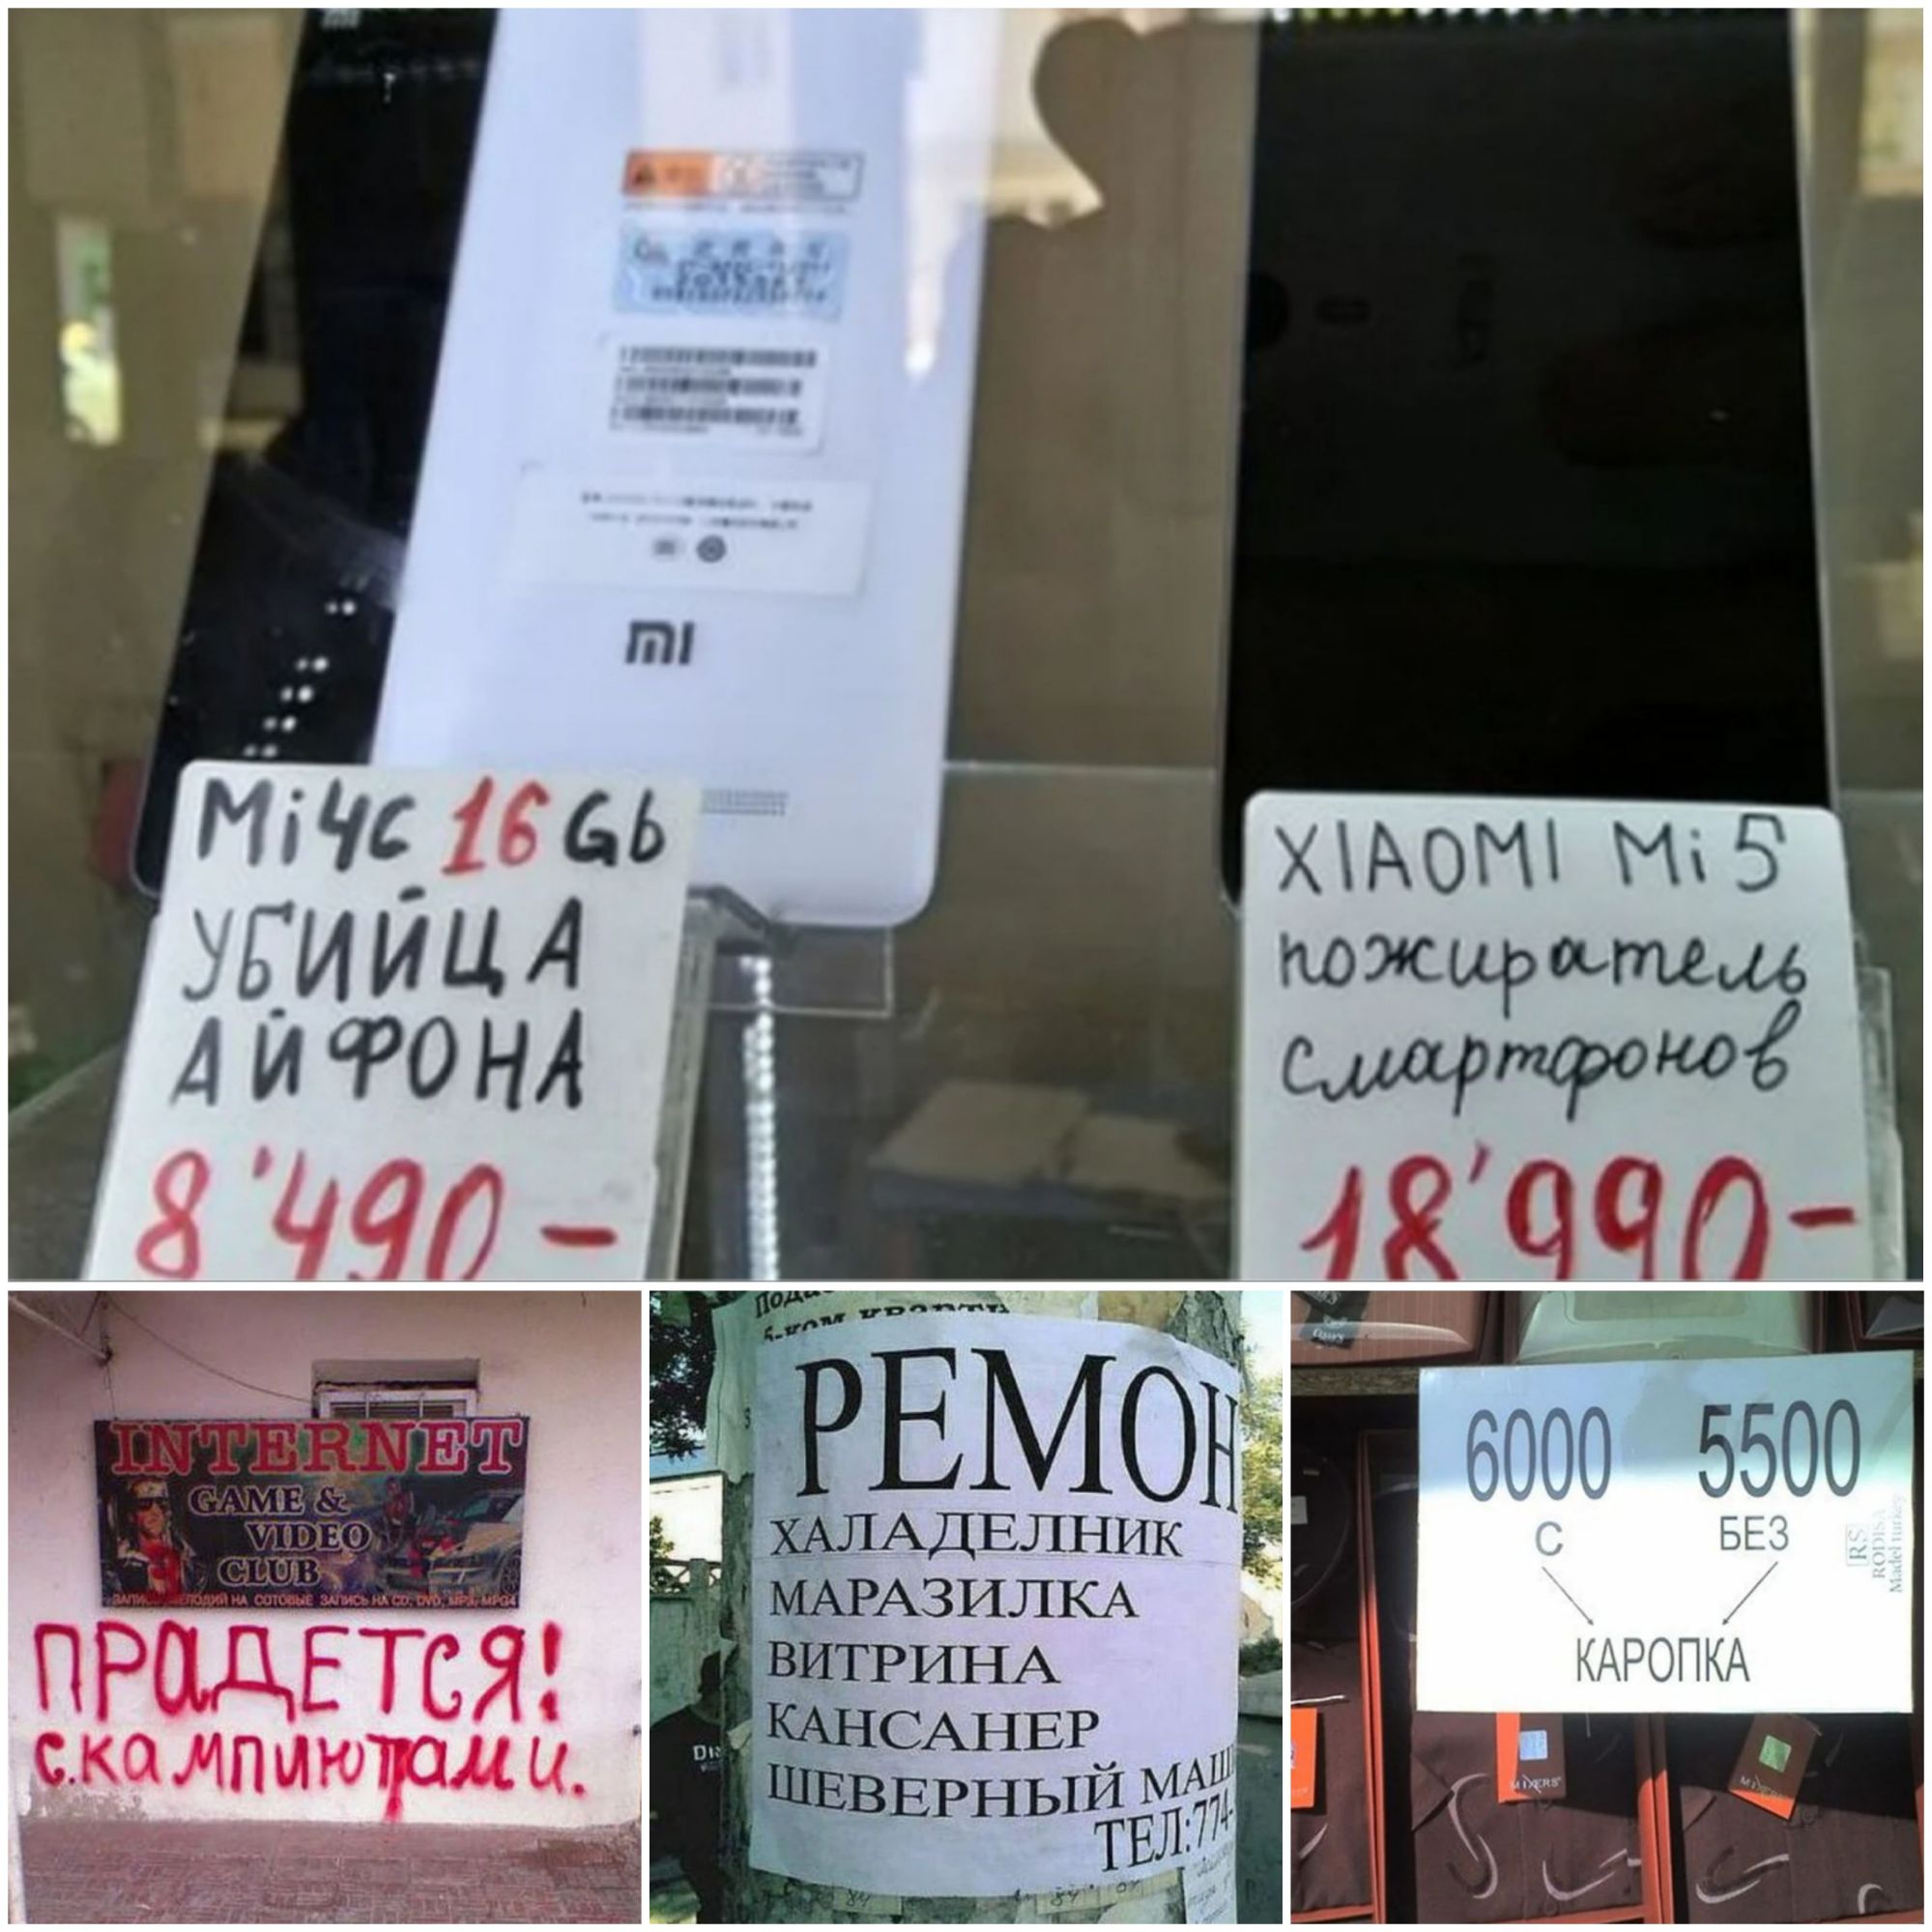 MI
Mi4c 16Gb
УБИЙЦА
АЙФОНА
8'490-
XIAOMI Mi5
пожиратель
смартфонов
18'990-
INTERNET
GAME &
VIDEO
CLUB
ЗАПИСЬ МЕЛОДИЙ НА СОТОВЫЕ ЗАПИСЬ НА CD, DVD, MP3, MPG4
ПРАДЕТСЯ!
с.кампиютами.
5-ком квартир
РЕМОН
ХАЛАДЕЛНИК
МАРАЗИЛКА
ВИТРИНА
КАНСАНЕР
ШЕВЕРНЫЙ МАШ
ТЕЛ:774-
6000 5500
С БЕЗ
КАРОПКА
RS
RODISA
MIXERS